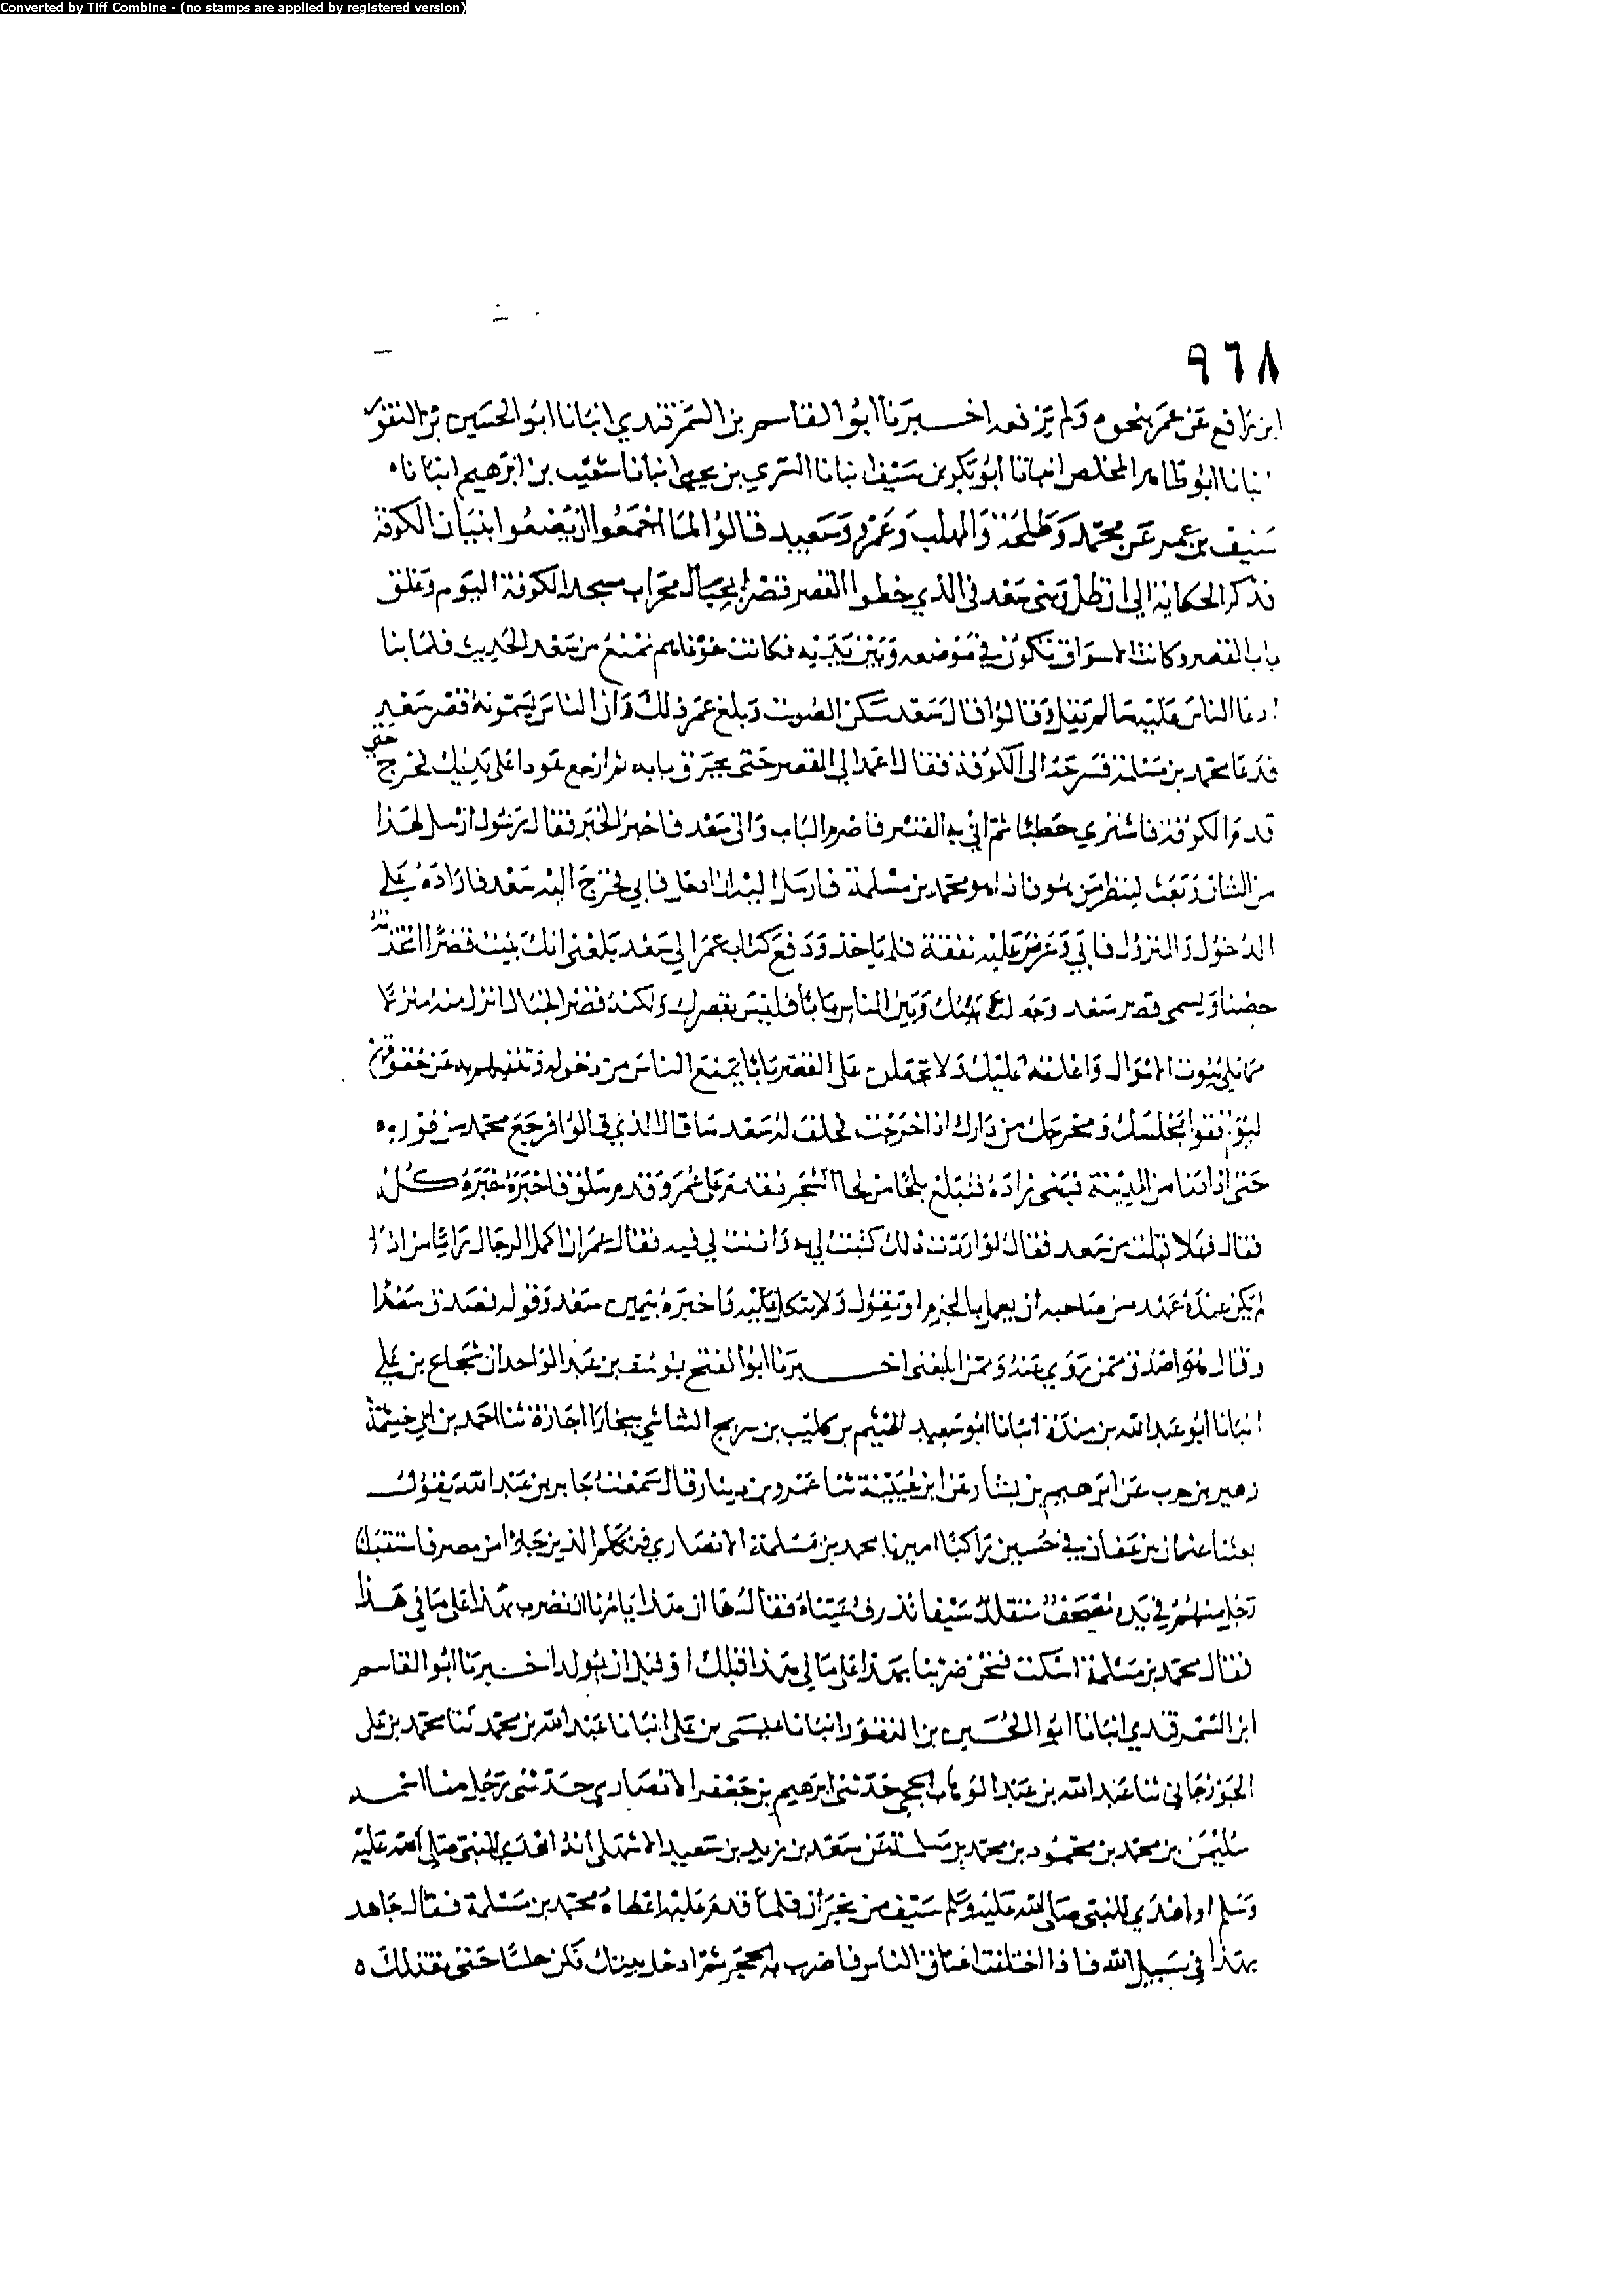 Converted by Tiff Combine - (no stamps are applied by registered version)
٩٦٨
ابن رافع عن عمر بنحوه ولم يرفعه اخبرنا ابو القاسم بن السمرقندي انبانا ابو الحسين بن النقور
انبانا ابو طاهر المخلص انبانا ابو بكر بن سيف انبانا السري بن يحيى انبانا شعيب بن ابرهيم انبانا
سيف بن عمر عن محمد وطلحة والمهلب وعمرو وسعيد قالوا لما اجمعوا ان يضعوا بنيان الكوفة
فذكر الحكاية الى ان قال وبنى سعد في الذي خطوا القصر قصرا بحيال محراب مسجد الكوفة اليوم وغلق
باب القصر وكانت الاسواق تكون في موضعه وبين يديه فكانت غوغاهم تمنع من سعد الحديث فلما بنا
ادعا الناس عليه ما لم يقل وقالوا قال سعد سكن الصوت وبلغ عمر ذلك وان الناس يسمونه قصر سعد
فدعا محمد بن مسلمة فسرحه الى الكوفة فقال اعمد الى القصر حتى تحرق بابه ثم ارجع عودا على بديك فخرج حتى
قدم الكوفة فاشترى حطبا ثم اتى به القصر فاضرم الباب واتى سعد فاخبر الخبر فقال رسول ارسل لهذا
من الشان وبعث لينظر من هو فاذا هو محمد بن مسلمة فارسل اليه ان ادخل فابى فخرج اليه سعد فاراده على
الدخول والنزول فابى وعرض عليه نفقة فلم ياخذ ودفع كتاب عمر الى سعد بلغني انك بنيت قصرا اتخذته
حصنا ويسمى قصر سعد وجعلت بينك وبين الناس بابا فليس بقصرك ولكنه قصر الخبال انزل منه منزلا
مما يلي بيوت الاموال واغلقه عليك ولا تجعلن على القصر بابا يمنع الناس من دخوله وتنفيهم به عن حقوقهم
ليوافقوا مجلسك ومخرجك من دارك اذا خرجت فحلف له سعد ما قال الذي قالوا فرجع محمد من فوره
حتى اذا دنا من المدينة فني زاده فتبلغ بلحا من لحا الشجر فقدم على عمر وقد سنق فاخبره خبره كله
فقال فهلا قبلت من سعد فقال لو اردت ذلك كتبت لي به واذنت لي فيه فقال عمر ان اكمل الرجال رايا من اذا
لم يكن عنده عهد من صاحبه ان يعمل بالحزم او يقول ولا ينكل عليه واخبره بيمين سعد وقوله فصدق سعدا
وقال هو اصدق ممن روى عنه وممن ابلغني اخبرنا ابو الفتح يوسف بن عبد الواحد ان شجاع بن علي
انبانا ابو عبد الله بن مندة انبانا ابو سعيد الهيثم بن كليب بن سريج الشاشي ببخارا اجازة ثنا احمد بن ابي خيثمة
زهير بن حرب عن ابرهيم بن بشار عن ابن عيينة ثنا عمرو بن دينار قال سمعت جابر بن عبد الله يقول
بعثنا عثمان بن عفان في خمسين راكبا اميرنا محمد بن مسلمة الانصاري فتكلم الذين جاوا من مصر فاستقبلنا
رجل منهم في يده مصحف متقلد سيفا تذرف عيناه فقال ها ان هذا يامرنا ان نضرب بهذا على ما في هذا
فقال محمد بن مسلمة اسكت فنحن ضربنا بهذا على ما في هذا قبلك او قبل ان تولد اخبرنا ابو القاسم
ابن السمرقندي انبانا ابو الحسين بن النقور انبانا عيسى بن علي انبانا عبد الله بن محمد ثنا محمد بن علي
الجوزجاني ثنا عبد الله بن عبد الوهاب الحجبي حدثني ابرهيم بن جعفر الانصاري حدثني رجل منا اسمه
سليمن بن محمد بن محمود بن محمد بن مسلمة عن سعد بن زيد بن سعيد الاشهلي انه اهدى للنبي صلى الله عليه
وسلم او اهدي للنبي صلى الله عليه وسلم سيف من نجران فلما قدم عليه اعطاه محمد بن مسلمة فقال جاهد
بهذا في سبيل الله فاذا اختلفت اعناق الناس فاضرب به الحجر ثم ادخل بيتك فكن حلسا حتى تقتلك ه